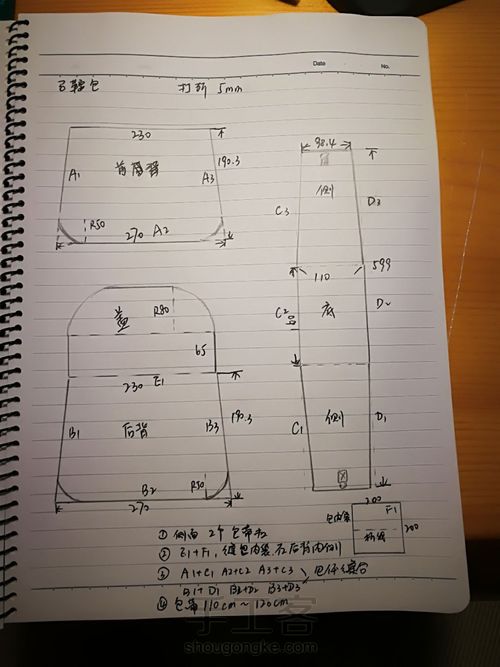 Date No.
马鞍包 打斩 5mm
230
A1 前片背 A3 190.3
R50
270 A2
98.4
侧
C3 D3
110 599
C2 底 D2
盖 R80
65
230 E1
B1 后背 B3 190.3
B2 R50
270
C1 侧 D1
200
包内袋 F1
折线 200
① 侧面 2个包带扣
② E1+F1,缝包内袋在后背内侧
③ A1+C1 A2+C2 A3+C3
B1+D1 B2+D2 B3+D3
包体缝合
④ 包带 110cm ~ 120cm
手工客
shougongke.com